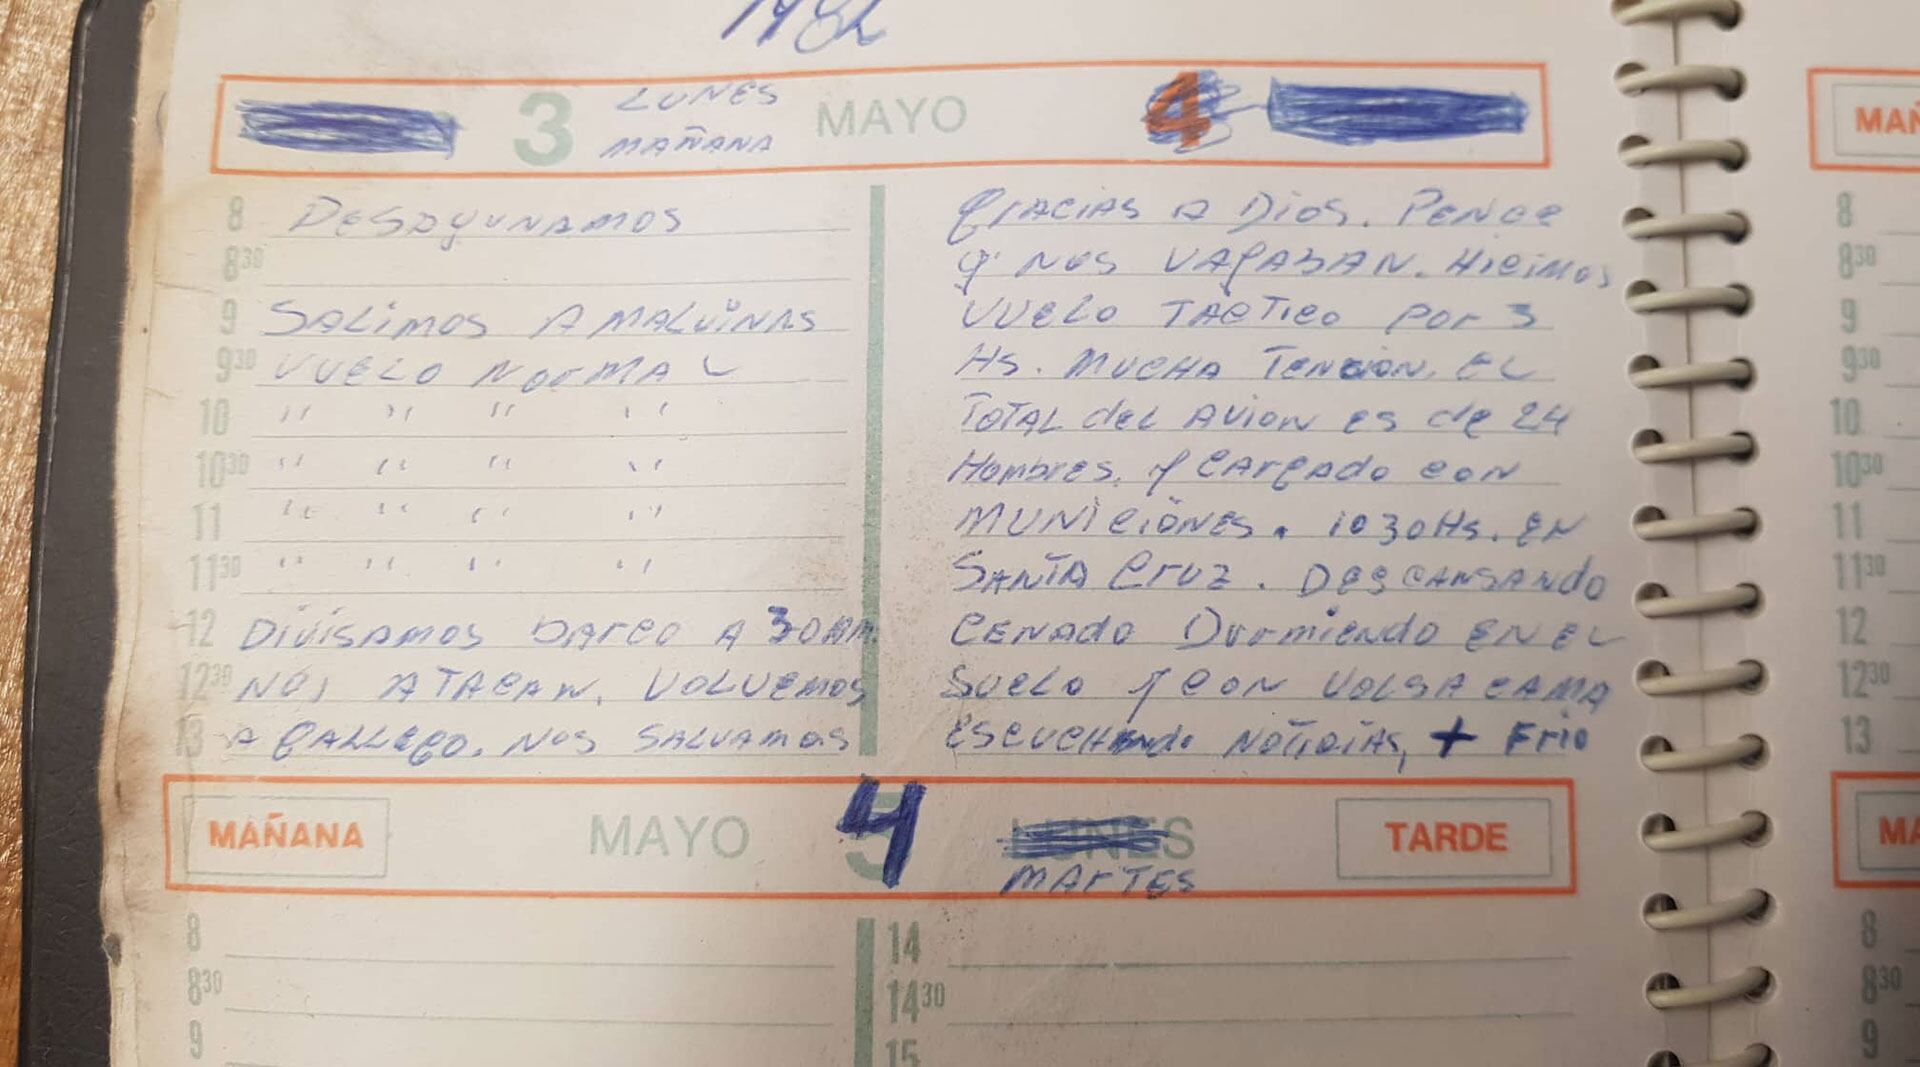 1982
3 LUNES MAYO 4
MAÑANA
8 DESAYUNAMOS
8 30
9 SALIMOS A MALVINAS
9 30 VUELO NORMAL
10 " " " "
10 30 " " " "
11 " " " "
11 30 " " " "
12 DIVISAMOS BARCO A 30 AM.
12 30 NOS ATACAN. VOLVEMOS
13 A GALLEGO. NOS SALVAMOS
GRACIAS A DIOS. PENCE
q' NOS VAGABAN. HICIMOS
VUELO TACTICO POR 3
HS. MUCHA TENCION. EL
TOTAL del AVION ES de 24
HOMBRES. Y CARGADO CON
MUNICIONES. 10 30 HS. EN
SANTA CRUZ. DESCANSANDO
CENADO DURMIENDO EN EL
SUELO Y CON VOLSA CAMA
ESCUCHANdo NOTICIAS, + FRIO
MAÑANA MAYO 4 LUNES TARDE
MARTES
8
8 30
9
14
14 30
15
MAÑ
8
8 30
9
9 30
10
10 30
11
11 30
12
12 30
13
MA
8
8 30
9